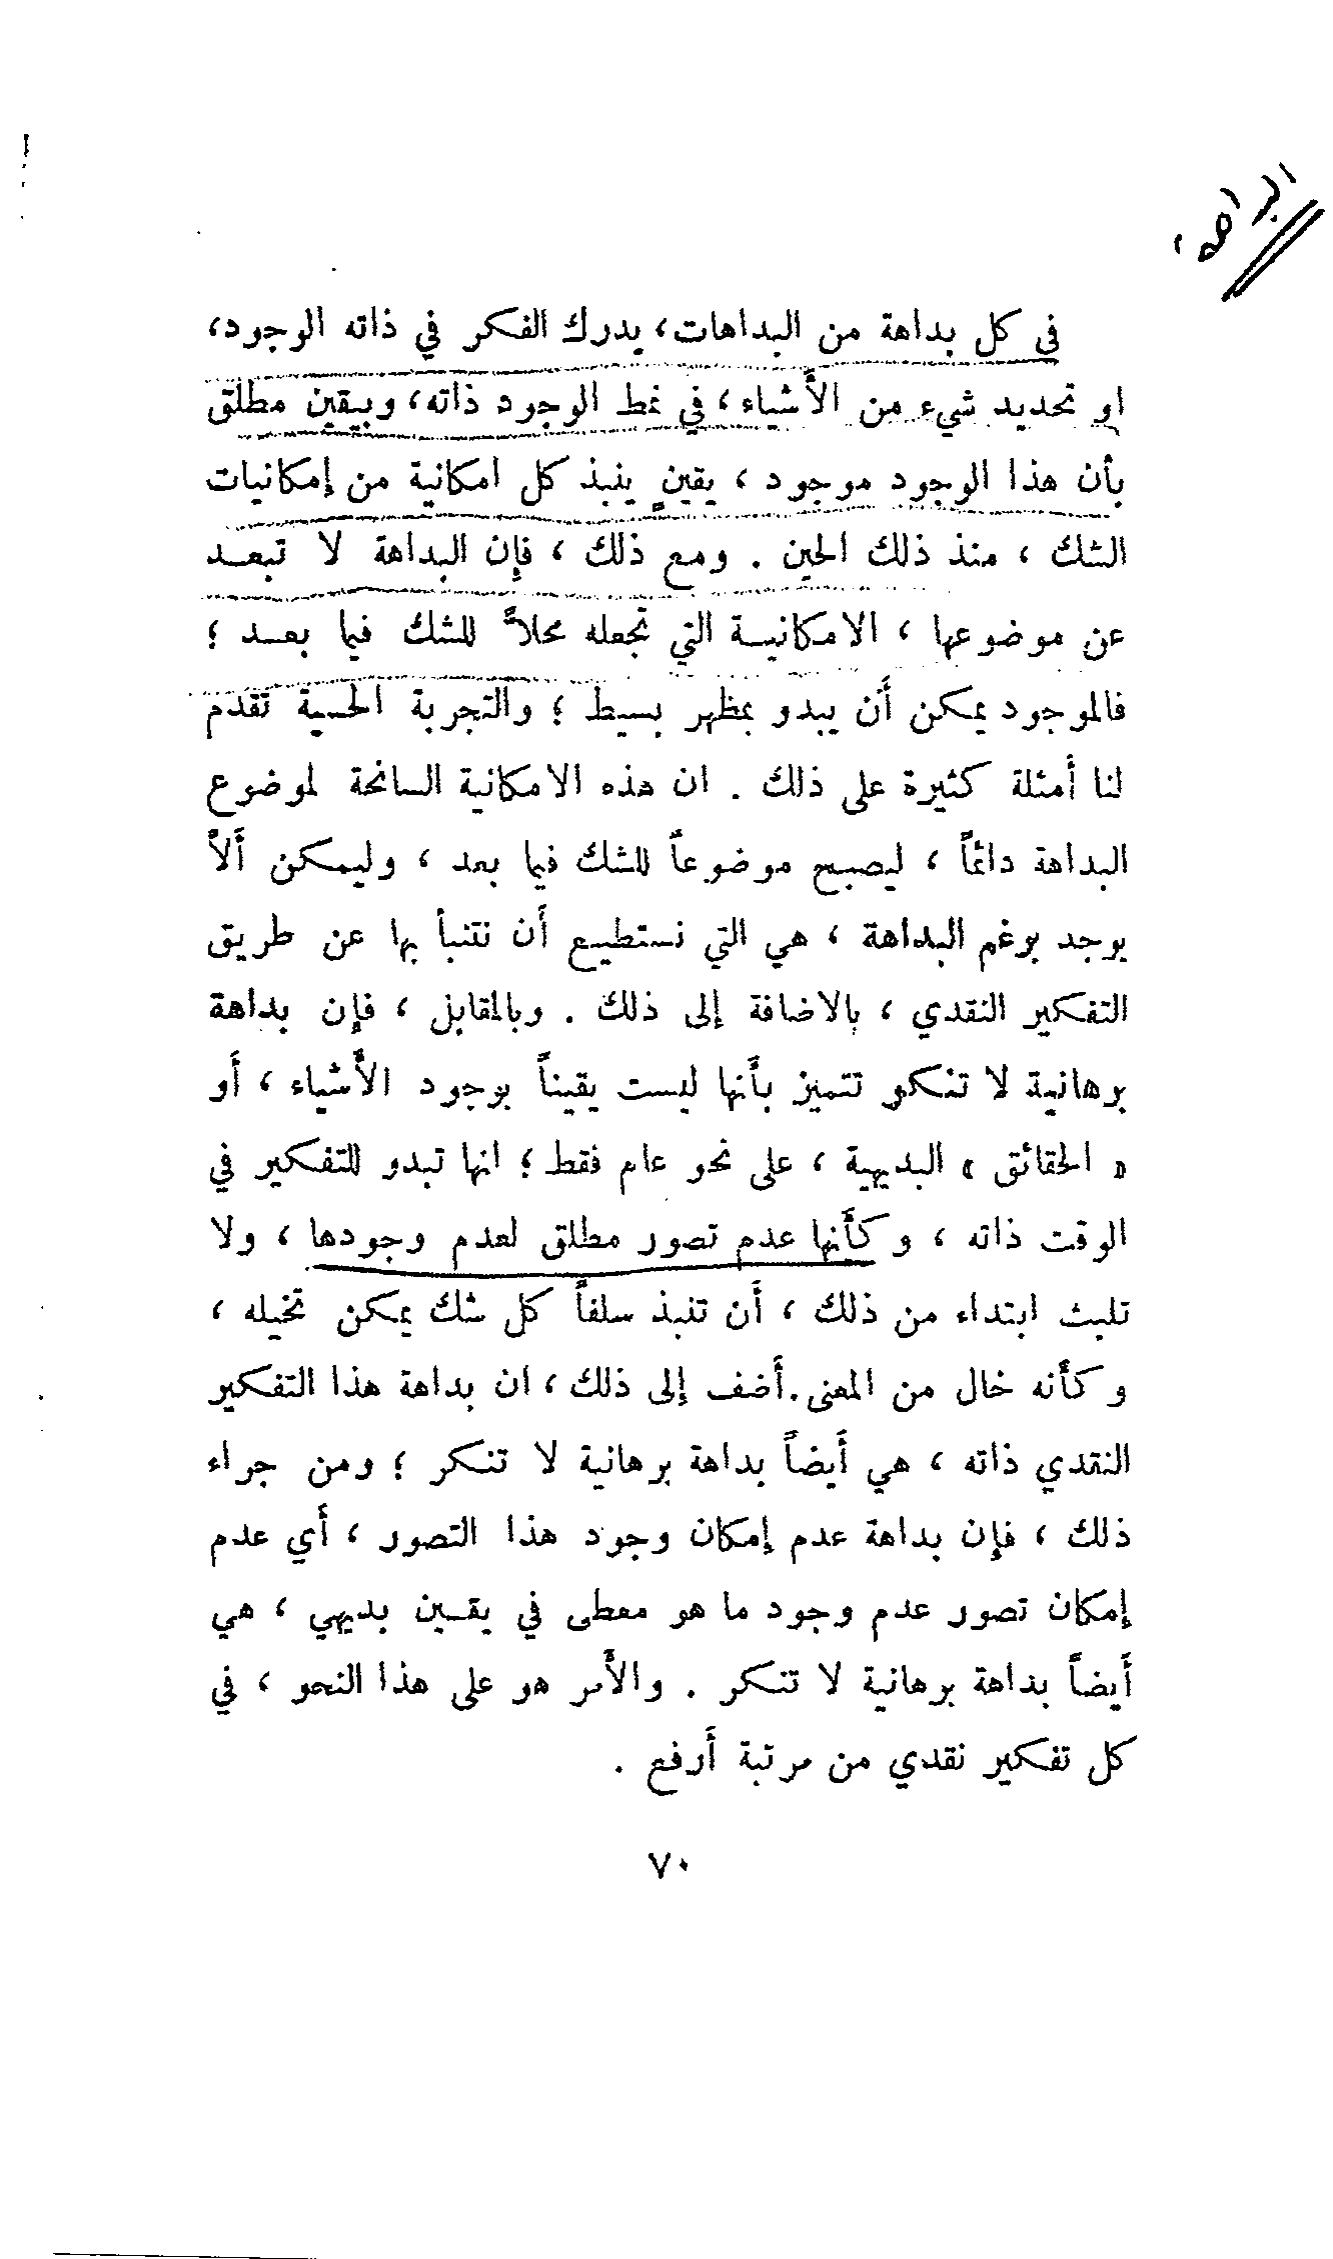 البداهة
في كل بداهة من البداهات، يدرك الفكر في ذاته الوجود،
او تحديد شيء من الأشياء، في نمط الوجود ذاته، وبيقين مطلق
بأن هذا الوجود موجود ، يقينٍ ينبذ كل امكانية من إمكانيات
الشك ، منذ ذلك الحين . ومع ذلك ، فإن البداهة لا تبعد
عن موضوعها ، الامكانية التي تجعله محلاً للشك فيما بعد ؛
فالموجود يمكن أن يبدو بمظهر بسيط ؛ والتجربة الحسية تقدم
لنا أمثلة كثيرة على ذلك . ان هذه الامكانية السانحة لموضوع
البداهة دائماً ، ليصبح موضوعاً للشك فيما بعد ، وليمكن ألاّ
يوجد برغم البداهة ، هي التي نستطيع أن نتنبأ بها عن طريق
التفكير النقدي ، بالاضافة إلى ذلك . وبالمقابل ، فإن بداهة
برهانية لا تنكر تتميز بأنها ليست يقيناً بوجود الأشياء ، أو
« الحقائق » البديهية ، على نحو عام فقط ؛ انها تبدو للتفكير في
الوقت ذاته ، وكأنها عدم تصور مطلق لعدم وجودها ، ولا
تلبث ابتداء من ذلك ، أن تنبذ سلفاً كل شك يمكن تخيله ،
وكأنه خال من المعنى. أضف إلى ذلك ، ان بداهة هذا التفكير
النقدي ذاته ، هي أيضاً بداهة برهانية لا تنكر ؛ ومن جراء
ذلك ، فإن بداهة عدم إمكان وجود هذا التصور ، أي عدم
إمكان تصور عدم وجود ما هو معطى في يقين بديهي ، هي
أيضاً بداهة برهانية لا تنكر . والأمر هو على هذا النحو ، في
كل تفكير نقدي من مرتبة أرفع .
٧٠